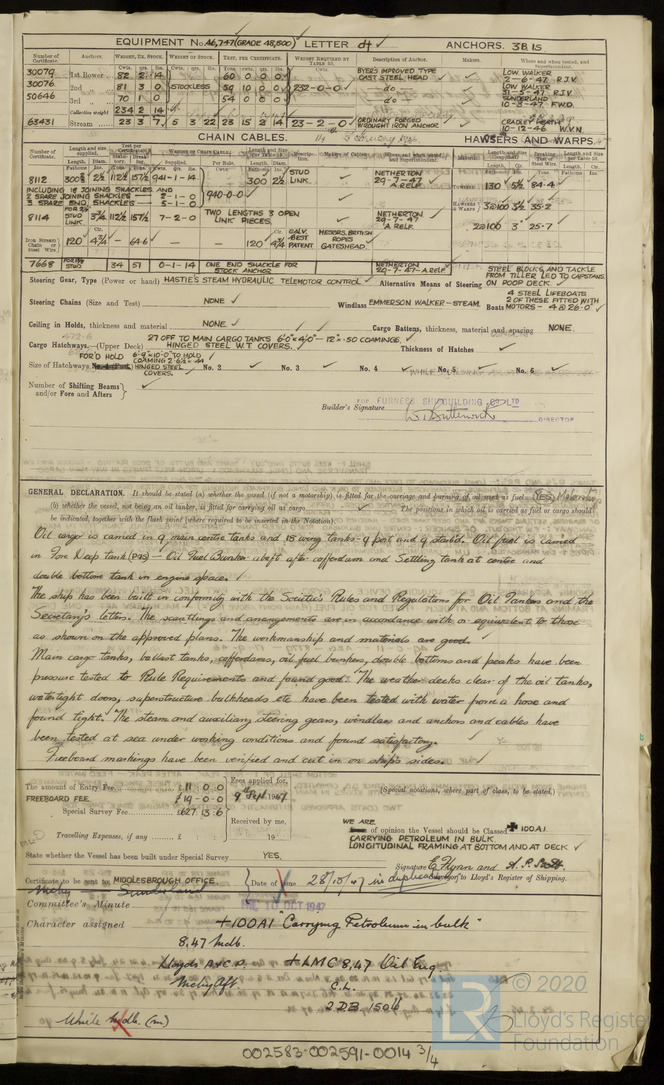 EQUIPMENT No. 46,747 (GRADE 48,500) LETTER d† ANCHORS. 3B 1S
Number of Certificate. Anchors. WEIGHT, EX. STOCK. WEIGHT OF STOCK. TEST, PER CERTIFICATE. WEIGHT REQUIRED BY TABLE 23. Description of Anchor. Makers. Where and when tested, and Superintendent.
30079 1st Bower 82 2 14 STOCKLESS 60 0 0 0 232-0-0 BYERS IMPROVED TYPE CAST STEEL HEAD LOW WALKER 2-6-47. R.J.V.
30076 2nd 81 3 0 59 10 0 0 do LOW WALKER 31-5-47 R.J.V.
50646 3rd 70 1 0 54 0 0 0 do SUNDERLAND 10-3-47. F.W.D.
Collective weight 234 2 14
63431 Stream 23 3 7 5 3 22 23 15 2 14 23-2-0 ORDINARY FORGED WROUGHT IRON ANCHOR CRADLEY HEATH 10-12-46 W.V.N.
CHAIN CABLES. HAWSERS AND WARPS.
8112 300 2½ 112½ 157½ 941-1-14 940-0-0 300 2½ STUD LINK NETHERTON 29-7-47 A RELF 130 5½ 84·4
INCLUDING 18 JOINING SHACKLES AND
2 SPARE JOINING SHACKLES — 2-1-0
3 SPARE END SHACKLES — 5-1-0
3@100 3½ 35·2
8114 STUD LINK 3¾ 112½ 157½ 7-2-0 TWO LENGTHS 3 OPEN LINK PIECES. NETHERTON 29-7-47 A RELF
2@100 3 25·7
Iron Stream Chain or Steel Wire 120 4¾ — 64·6 — — 120 4¾ GALV. BEST PATENT ROPES GATESHEAD.
7668 STUD 34 51 0-1-14 ONE END SHACKLE FOR STOCK ANCHOR NETHERTON 29-7-47-A RELF
Steering Gear, Type (Power or hand) HASTIE'S STEAM HYDRAULIC TELEMOTOR CONTROL Alternative Means of Steering STEEL BLOCKS, AND TACKLE FROM TILLER LED TO CAPSTANS ON POOP DECK.
Steering Chains (Size and Test) NONE Windlass EMMERSON WALKER-STEAM. Boats 4 STEEL LIFEBOATS 2 OF THESE FITTED WITH MOTORS - 4 @ 26·0
Ceiling in Holds, thickness and material NONE Cargo Battens, thickness, material and spacing NONE.
Cargo Hatchways.—(Upper Deck) 27 OFF TO MAIN CARGO TANKS 6'0 x 4'0 - 12" x ·50 COAMINGS, HINGED STEEL W.T COVERS. Thickness of Hatches
Size of Hatchways FOR'D HOLD 6'-9" x 10'-0" TO HOLD COAMING 2'-6½ x ·44 HINGED STEEL COVERS. No. 2 No. 3 No. 4 No. 5 No. 6
Number of Shifting Beams and/or Fore and Afters
FOR FURNESS SHIPBUILDING CO LTD
Builder's Signature DIRECTOR
GENERAL DECLARATION. It should be stated (a) whether the vessel (if not a motorship) is fitted for the carriage and burning of oil used as fuel. (YES)
(b) whether the vessel, not being an oil tanker, is fitted for carrying oil as cargo The positions in which oil is carried as fuel or cargo should
be indicated, together with the flash point (where required to be inserted in the Notation).
Oil cargo is carried in 9 main centre tanks and 18 wing tanks - 9 port and 9 starbd. Oil fuel is carried
in Fore Deep tank (P&S) - Oil Fuel Bunker abaft after cofferdam and Settling tank at centre and
double bottom tank in engine space.
The ship has been built in conformity with the Societie's Rules and Regulations for Oil Tankers and the
Secretary's letters. The scantlings and arrangements are in accordance with or equivalent to those
as shown on the approved plans. The workmanship and materials are good.
Main cargo tanks, ballast tanks, cofferdams, oil fuel bunkers, double bottoms and peaks have been
pressure tested to Rule Requirements and found good. The weather decks clear of the oil tanks,
watertight doors, superstructure bulkheads etc have been tested with water from a hose and
found tight. The steam and auxiliary steering gears, windlass and anchors and cables have
been tested at sea under working conditions and found satisfactory.
Freeboard markings have been verified and cut in on ship's sides.
The amount of Entry Fee £ 11 : 0 : 0 Fees applied for, (Special notations, where part of class, to be stated.)
FREEBOARD FEE. £ 19-0-0 9th Sept 1947
Special Survey Fee £627 13 6 Received by me,
WE ARE of opinion the Vessel should be Classed ✠ 100A1
CARRYING PETROLEUM IN BULK.
LONGITUDINAL FRAMING AT BOTTOM AND AT DECK
Travelling Expenses, if any £ : : 19
State whether the Vessel has been built under Special Survey YES.
Signature E. Flynn and
Certificate to be sent to MIDDLESBROUGH OFFICE. Date of 28/10/47 in duplicate Surveyor to Lloyd's Register of Shipping.
Committee's Minute 10 OCT 1947
Character assigned +100A1 "Carrying Petroleum in bulk"
8,47 Mdb.
Lloyds A&C.P. +LMC 8,47 Oil Eng
Mchy Aft C.L.
2 DB 150 lb
White Mdb. (m)
© 2020
Lloyd's Register
Foundation
002583-002591-0014 3/4